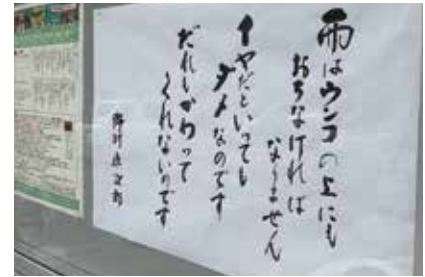 雨はウンコの上にも
おちなければ
なりません
イヤだといっても
ダメなのです
だれもかわって
くれないのです